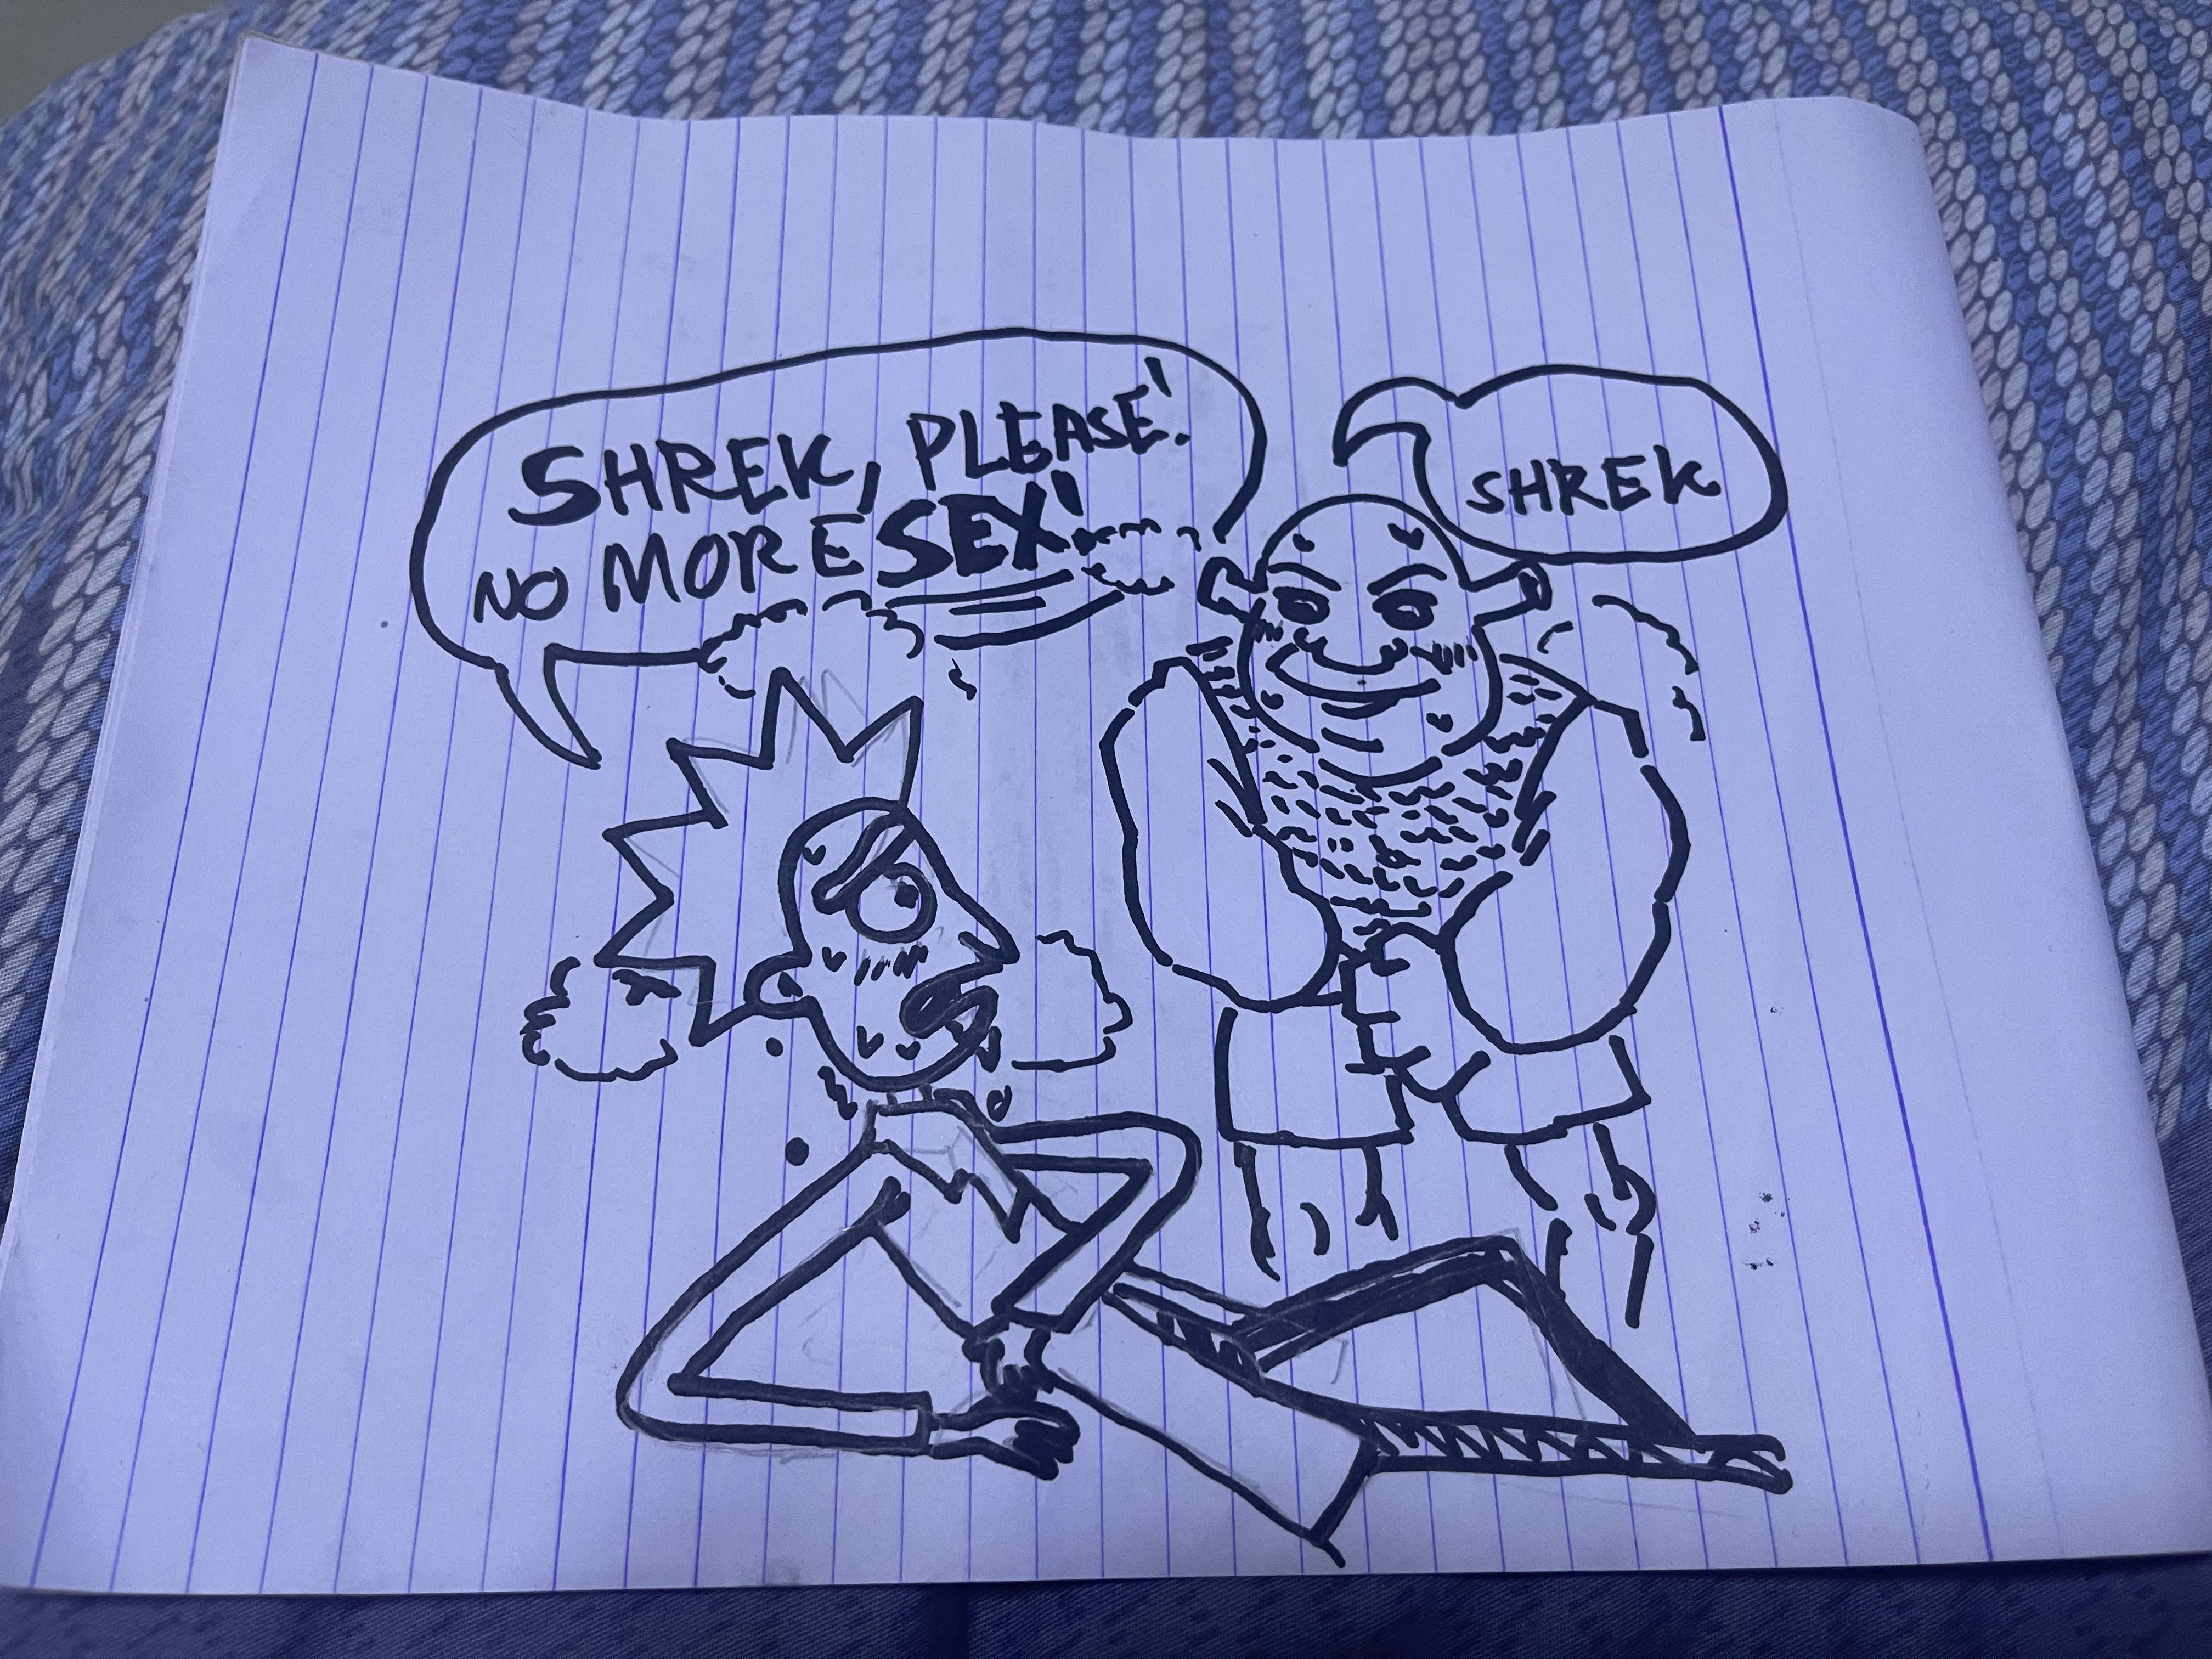 SHREK, PLEASE!
NO MORE SEX!
SHREK